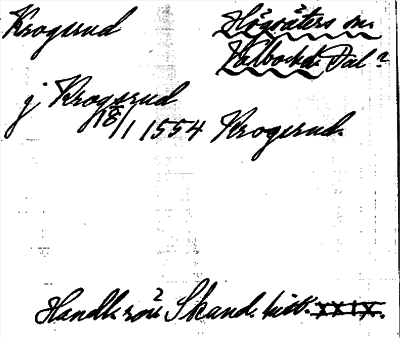 Krogsrud
Högsäters sn.
Valbo hd. Dal?
j Krogsrud
18/1 1554 Krogsrud.
Handl. rör. Skand. hist. XXIX.